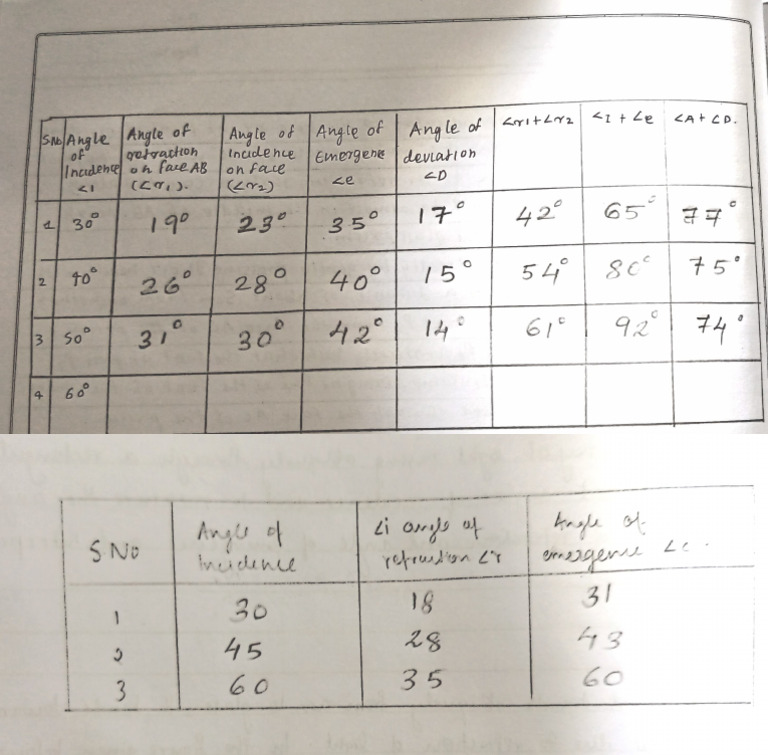 S.No Angle of Incidence <I Angle of refraction on face AB (<r1). Angle of Incidence on face (<r2) Angle of Emergene <e Angle of deviation <D <r1+<r2 <I + <e <A + <D.
1 30° 19° 23° 35° 17° 42° 65° 77°
2 40° 26° 28° 40° 15° 54° 80° 75°
3 50° 31° 30° 42° 14° 61° 92° 74°
4 60°
S No Angle of Incidence <i angle of refraction <r Angle of emergence <e.
1 30 18 31
2 45 28 43
3 60 35 60